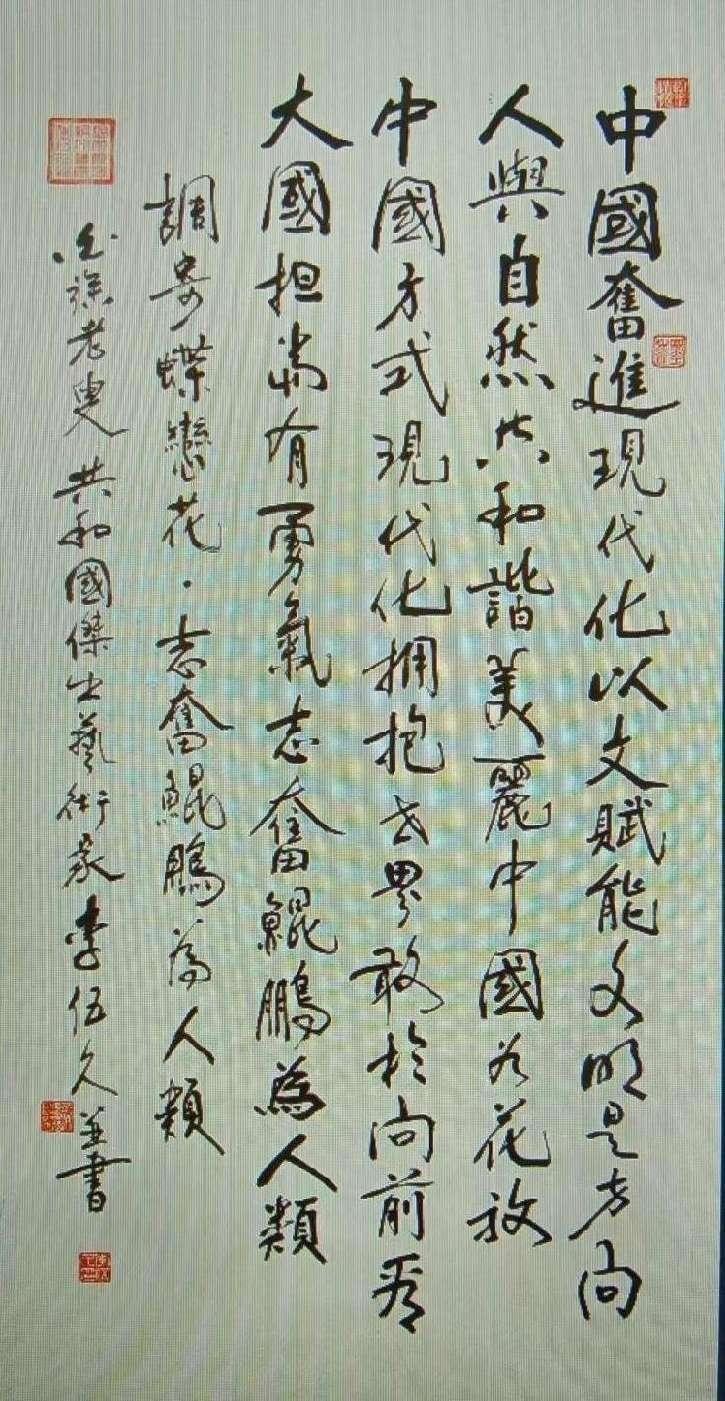 中國奮進現代化以文賦能文明是方向
人與自然共和諧美麗中國百花放
中國方式現代化擁抱世界敢於向前看
大國担當有勇氣志奮鯤鵬為人類
調寄蝶戀花·志奮鯤鵬為人類
老叟 共和國傑出藝術家李伍久並書